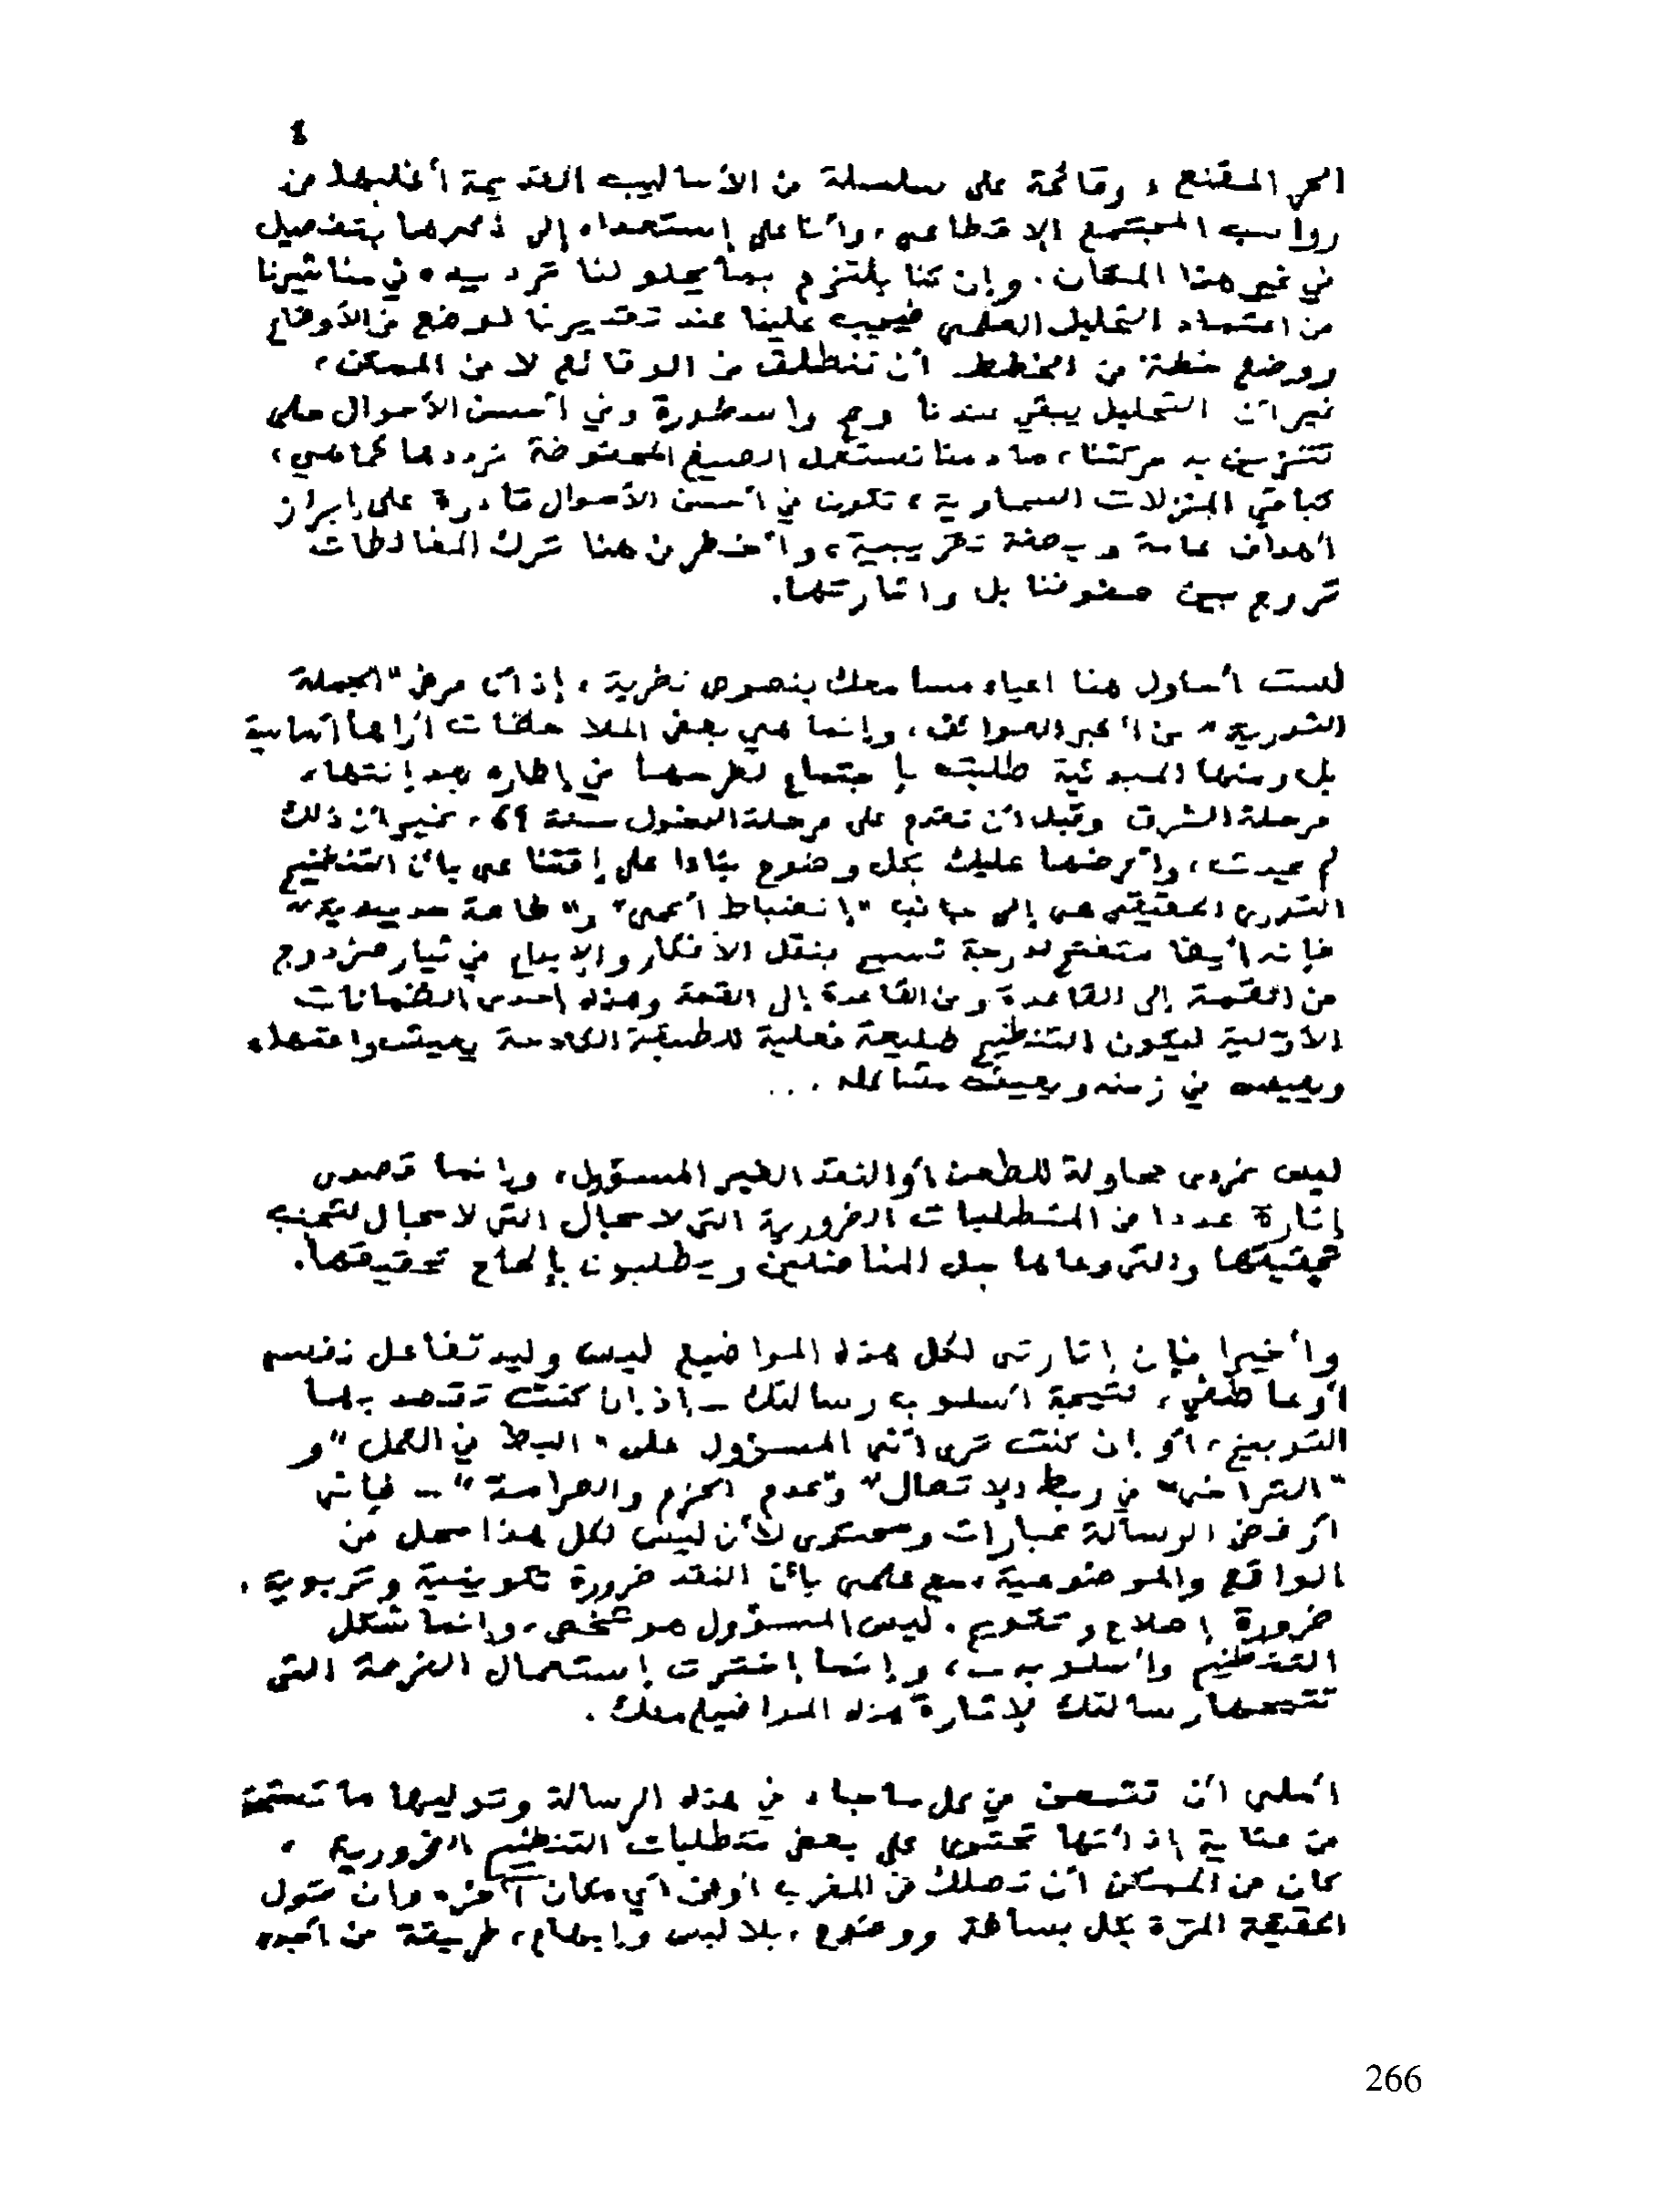 الحر المقنع، وقائمة على سلسلة من الأساليب القديمة أغلبها من
رواسب المجتمع الإقطاعي، وأنا على إستعداد إلى ذكرها بتفصيل
في غير هذا المكان. وإن كنا نلتزم بما يحلو لنا ترديده في مناشيرنا
من اعتماد التحليل العلمي فيجب علينا عند تقديرنا لوضع من الأوضاع
ووضع خطة من الخطط أن ننطلق من الوقائع لا من الممكن،
غير أن التحليل يبقى عندنا وهم واسطورة وفي أحسن الأحوال حلى
تتزين به حركتنا، مادمنا نستعمل الصيغ المحفوظة نرددها كماهي،
كباقي المنزلات السماوية، تكون في أحسن الأحوال قادرة على إبراز
أهداف عامة وبصفة تقريبية، وأخطر من هنا ترك المغالطات
تروج بين صفوفنا بل واثارتها.
لست أحاول هنا اعياء مسامعك بنصوص نظرية، إذ أن مرض "الجملة
الثورية" من أكبر العوائق، وإنما هي بعض الملاحظات أراها أساسية
بل ومنها المبدئية طلبت بإجتماع لطرحها في إطاره بعد إنتهاء
مرحلة الشرق وقبل أن نقدم على مرحلة الدخول سنة 69، غير أن ذلك
لم يحدث، وأعرضها عليك بكل وضوح بناءا على إقتناعي بأن التنظيم
الثوري الحقيقي هي إلى جانب "إنضباط أعمى" و"طاعة حديدية"
فإنه أيضا متفتح لدرجة تسمح بنقل الأفكار والإبداع في تيار مزدوج
من القمة إلى القاعدة ومن القاعدة إلى القمة وهذه إحدى الضمانات
الأولية ليكون التنظيم طليعة فعلية للطبقة الكادحة يعيش واقعها،
ويعيش في زمنه ويعيش مشاكله...
ليس غرضي محاولة للطعن أو النقد الغير المسؤول، وإنما قصدي
إثارة عددا من المتطلبات الضرورية التي لا مجال التي لا مجال لتجنب
تحقيقها والتي وعاها جل المناضلين ويطلبون بإلحاح تحقيقها.
وأخيرا فإن إثارتي لكل هذه المواضيع ليس وليد تفاعل نفسي
أو عاطفي، نتيجة أسلوب رسالتك - إذ إن كنت تقصد بها
التوبيخ، أو إن كنت ترى أنني المسؤول على "البطء في العمل" و
"التراخي" في ربط الإتصال" وعدم الحزم والصرامة" - فإنني
أرفض الرسالة عبارات ومحتوى لأن ليس لكل هذا محل من
الواقع والموضوعية، مع علمي بأن النقد ضرورة تكوينية وتربوية،
ضرورة إصلاح وتقويم. ليس المسؤول هو شخصي، وإنما شكل
التنظيم وأسلوبه، وإنما إخترت إستعمال الفرصة التي
تتيحها رسالتك لإثارة هذه المواضيع معك.
أملي أن تتمعن في كل ما جاء في هذه الرسالة وتوليها ما تستحق
من عناية إذ أنها تحتوي على بعض متطلبات التنظيم الضرورية،
كان من الممكن أن تصلك من المغرب أو من أي مكان آخر، وإن تقول
الحقيقة المرة بكل بساطة ووضوح، بلا لبس وإبهام، طريقة من أجود
266